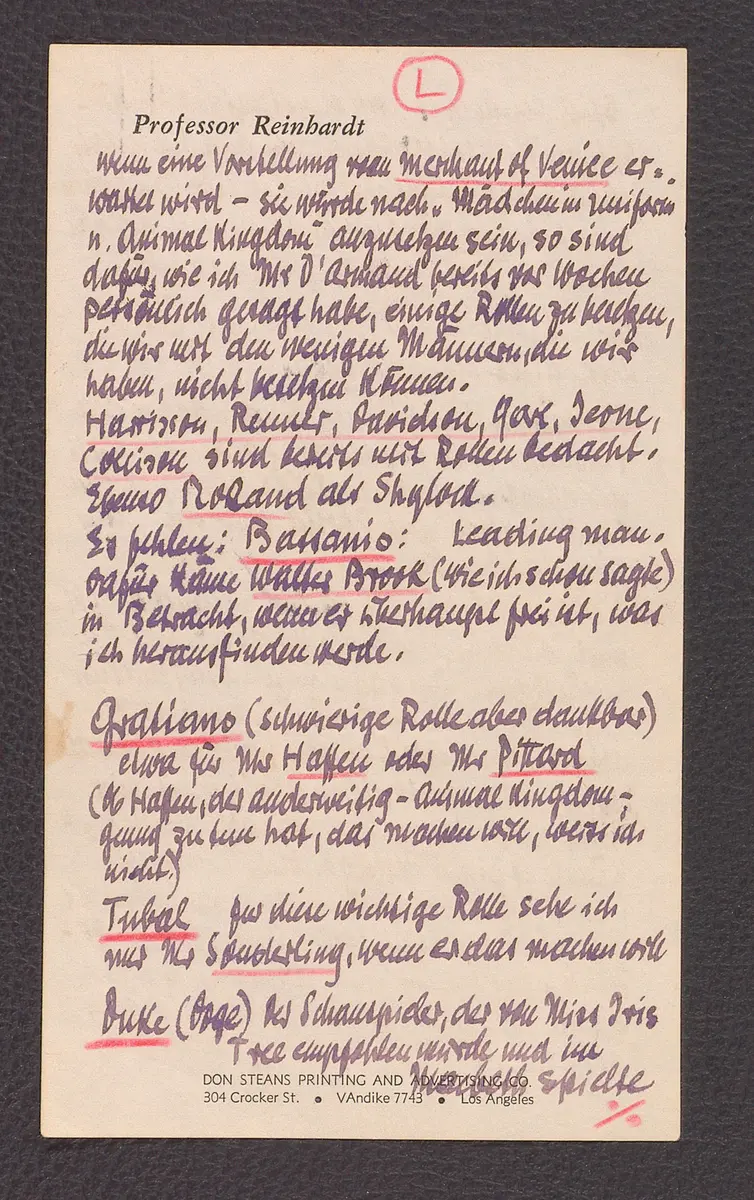 L
Professor Reinhardt
wenn eine Vorstellung von Merchant of Venice er-
wartet wird – sie würde nach „Mädchen in Uniform
u. Animal Kingdom" anzusetzen sein, so sind
dafür, wie ich Mr D'Armand bereits vor Wochen
persönlich gesagt habe, einige Rollen zu besetzen,
die wir mit den wenigen Männern, die wir
haben, nicht besetzen können.
Harrison, Renner, Davidson, Jerone,
Collison sind bereits mit Rollen bedacht.
Ebenso Roland als Shylock.
Es fehlen: Bassanio: Leading man.
Dafür käme Walter Brook (wie ich schon sagte)
in Betracht, wenn er überhaupt frei ist, was
ich herausfinden werde.
Gratiano (schwierige Rolle aber dankbar)
etwa für Mr Haffen oder Mr Pittard
(Ob Haffen, der anderweitig – Animal Kingdom –
genug zu tun hat, das machen will, weiss ich
nicht.)
Tubal für diese wichtige Rolle sehe ich
nur Mr Sonderling, wenn er das machen will
Duke (Doge) Der Schauspieler, der von Miss Iris
Tree empfohlen wurde und im
Macbeth spielte
DON STEANS PRINTING AND ADVERTISING CO.
304 Crocker St. • VAndike 7743 • Los Angeles
./.